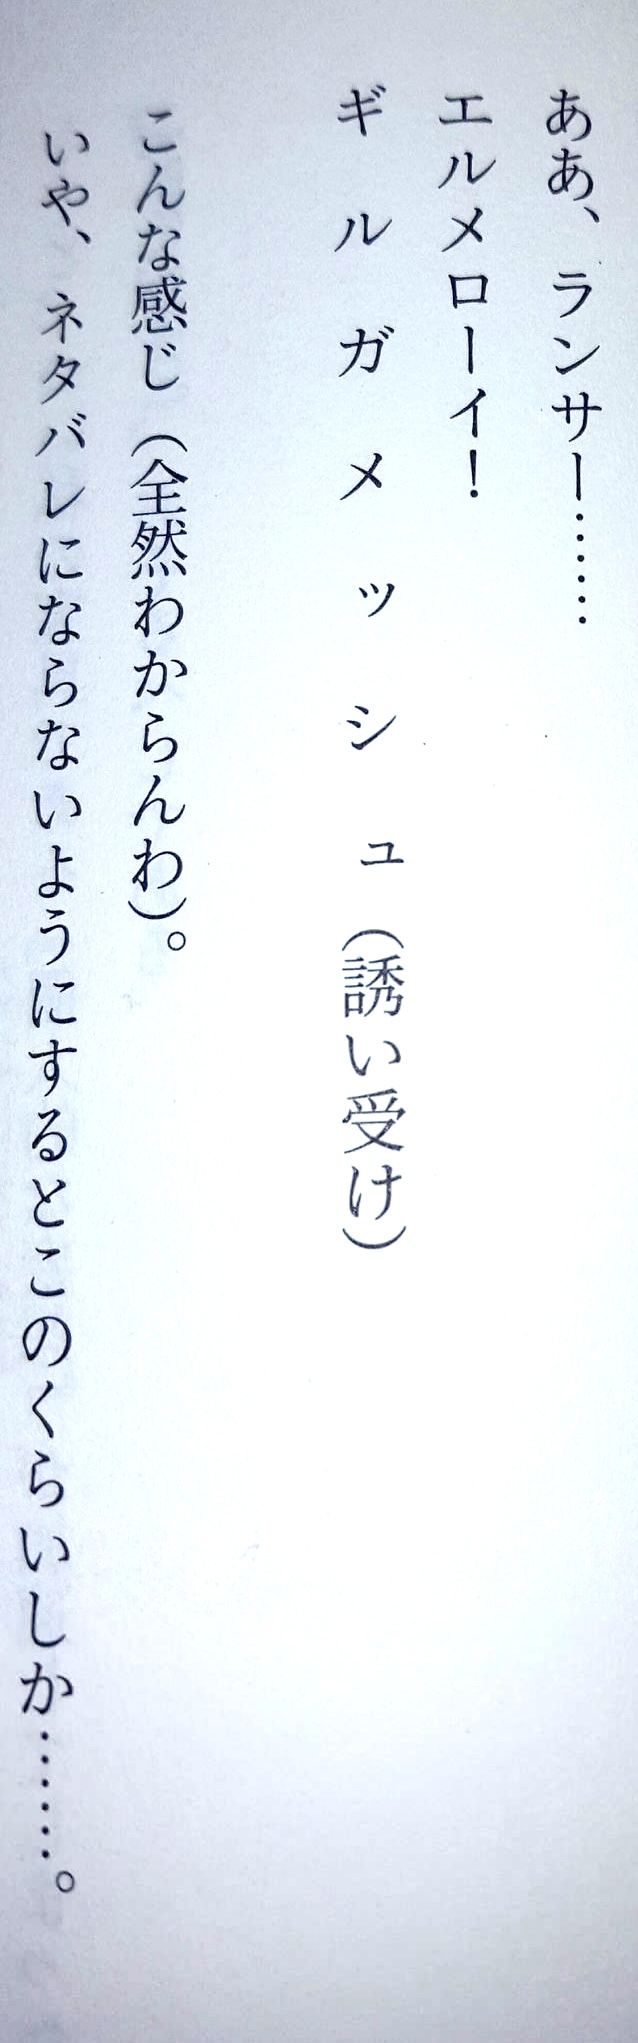 ああ、ランサー……
エルメローイ！
ギルガメッシュ（誘い受け）
こんな感じ（全然わからんわ）。
いや、ネタバレにならないようにするとこのくらいしか……。